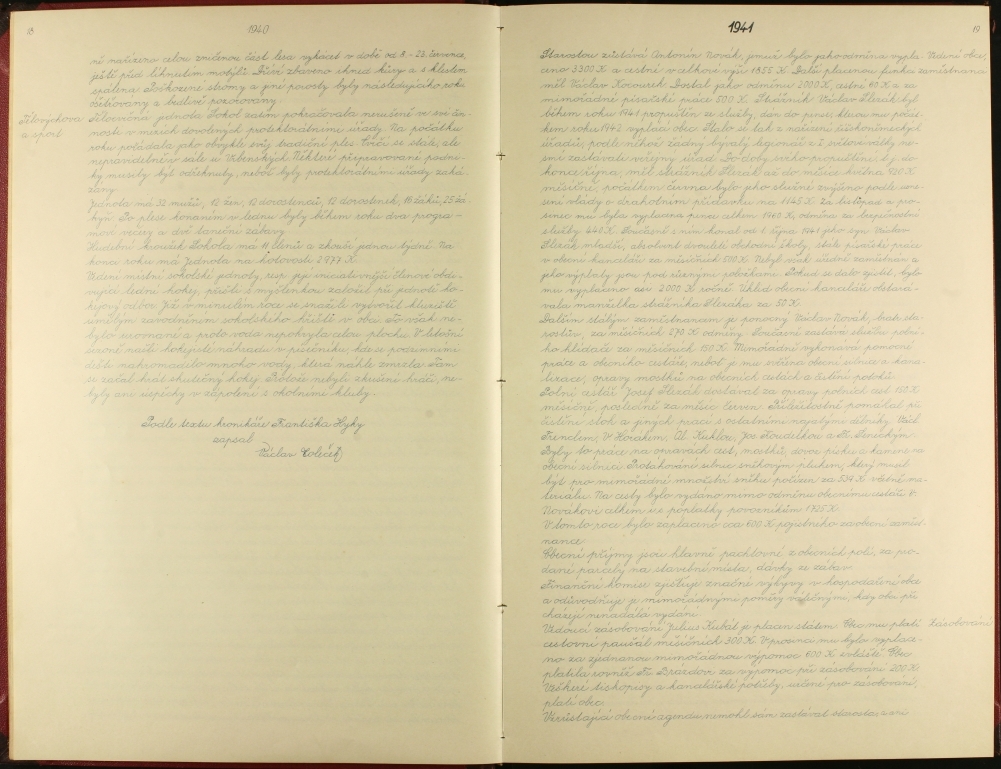 18
1940
ně nařízeno celou zničenou část lesa vykácet v době od 8. - 23. července,
ještě před líhnutím motýlů. Dříví zbaveno ihned kůry a s klestem
spálena. Poškozené stromy a jiné porosty byly následujícího roku
ošetřovány a bedlivě pozorovány.
Tělovýchova
a sport
Tělocvičná jednota Sokol zatím pokračovala nerušeně ve své čin-
nosti v mezích dovolených protektorátními úřady. Na počátku
roku pořádala jako obvykle svůj tradiční ples. Cvičí se stále, ale
nepravidelně v sále u Vrbenských. Některé připravované podni-
ky musily být odřeknuty, neboť byly protektorátními úřady zaká-
zány.
Jednota má 32 mužů, 12 žen, 12 dorostenců, 12 dorostenek, 18 žáků, 25 žá-
kyň. Po plese konaném v lednu byly během roku dva progra-
mové večery a dvě taneční zábavy.
Hudební kroužek Sokola má 11 členů a zkouší jednou týdně. Na
konci roku má jednota na hotovosti 2977 K.
Vedení místní sokolské jednoty, resp. její iniciativnější členové obdi-
vující lední hokej, přišli s myšlenkou založit při jednotě ho-
kejový odbor. Již v minulém roce se snažili vytvořit kluziště
umělým zavodněním sokolského hřiště v obci. To však ne-
bylo urovnané a proto voda nepokryla celou plochu. V letošní
sezoně našli hokejisté náhradu v pískovníku, kde se podzimními
dešti nahromadilo mnoho vody, která náhle zmrzla. Tam
se začal hrát skutečný hokej. Protože nebyli zkušení hráči, ne-
byly ani úspěchy v zápolení s okolními kluby.
Podle textu kronikáře Františka Hyky
zapsal
Václav Coleček
1941
19
Starostou zůstává Antonín Novák, jemuž bylo jako odměna vypla-
Vedení obce,
ceno 3300 K a cestné v celkové výši 1855 K. Další placenou funkci
zaměstnanci
měl Václav Kocourek. Dostal jako odměnu 2000 K, cestné 80 K a za
mimořádné písařské práce 500 K. Strážník Václav Slezák byl
během roku 1941 propuštěn ze služby, dán do pense, kterou mu počát-
kem roku 1942 vyplácí obec. Stalo se tak z nařízení
úřadů, podle něhož žádný bývalý legionář z I. světové války ne-
smí zastávati veřejný úřad. Do doby svého propuštění, tj. do
konce října, měl strážník Slezák až do měsíce května 920 K
měsíčně, počátkem června bylo jeho služné zvýšeno podle usne-
sení vlády o drahotním přídavku na 1145 K. Za listopad a pro-
sinec mu byla vyplacena pense celkem 1940 K, odměna za bezpečnostní
službu 440 K. Současně s ním konal od 1. října 1941 jeho syn Václav
Slezák mladší, absolvent dvouleté obchodní školy, stálé písařské práce
v obecní kanceláři za měsíčních 500 K. Nebyl však úředně zaměstnán a
jeho výplaty jsou pod různými položkami. Pokud se dalo zjistit, bylo
mu vyplaceno asi 2000 K ročně. Úklid obecní kanceláře obstará-
vala manželka strážníka Slezáka za 50 K.
Dalším stálým zaměstnancem je ponocný Václav Novák, bratr sta-
rostův, za měsíčních 270 K odměny. Současně zastává službu polní-
ho hlídače za měsíčních 150 K. Mimořádně vykonává pomocné
práce a obecního cestáře, neboť je mu svěřena obecní silnice a kana-
lizace, opravy mostků na obecních cestách a čištění potoků.
Polní cestář Josef Slezák dostával za opravy polních cest 150 K
měsíčně, posledně za měsíc červen. Příležitostně pomáhal při
čištění stok a jiných prací s ostatními najatými dělníky: Václ.
Frenclem, V. Horákem, Al. Kuklou, Jos. Koudelkou a
Byly to práce na opravách cest, mostků, dovoz písku a kamene na
obecní silnici. Protahování silnic sněhovým pluhem, který musil
být pro mimořádné množství sněhu pořízen za 534 K včetně ma-
teriálu. Na cesty bylo vydáno mimo odměnu obecnímu cestáři V.
Novákovi celkem i s poplatky povozníkům 1725 K.
V tomto roce bylo zaplaceno cca 600 K pojistného za obecní zaměst-
nance.
Obecní příjmy jsou hlavně pachtovné z obecních polí, za pro-
dané parcely na stavební místa, dávky ze zábav.
Finanční komise zjišťuje značné výkyvy v hospodaření obce
a odůvodňuje je mimořádnými poměry válečnými, kdy obci při-
cházejí nenadálá vydání.
Vedoucí zásobování Julius Kubát je placen státem. Obec mu platí
Zásobování
cestovní paušál měsíčních 300 K. V prosinci mu bylo vyplace-
no za zjednanou mimořádnou výpomoc 600 K zvláště. Obec
platila rovněž Fr. Brázdovi za výpomoc při zásobování 200 K.
Veškeré tiskopisy a kancelářské potřeby, určené pro zásobování,
platí obec.
Vzrůstající obecní agendu nemohl sám zastávat starosta, a ani